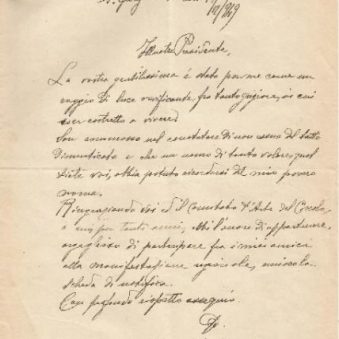 Illustre Presidente,
La vostra gentilissima è stata per me come un
raggio di luce vivificante, fra tanto grigiore, in cui
son costretto a vivere!
Son commosso nel constatare di non essere del tutto
dimenticato e che un uomo di tanto valore, qual
siete voi, abbia potuto ricordarsi del mio povero
nome.
Ringraziando voi e il Comitato d'Arte del Circolo,
a cui per tanti anni, ebbi l'onore di appartenere,
orgoglioso di partecipare fra i miei amici
alla manifestazione
scheda di notifica.
Con profondo rispetto ossequio